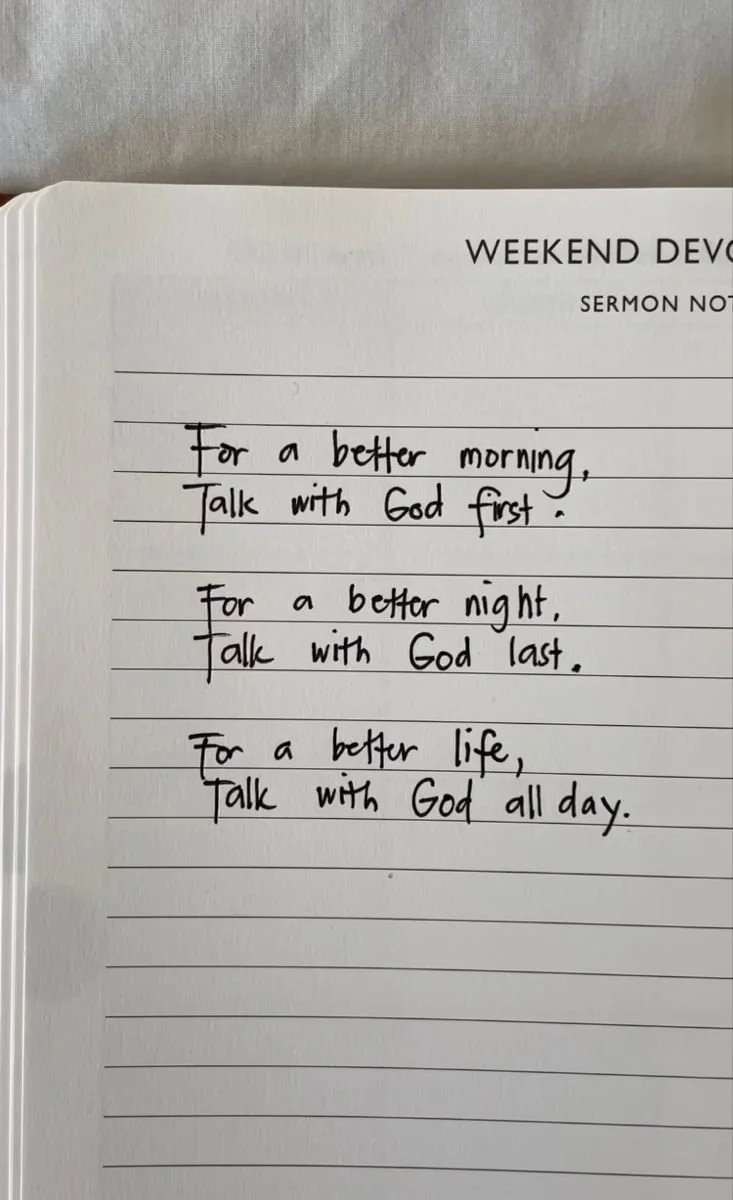 WEEKEND
SERMON
For a better morning,
Talk with God first.
For a better night,
Talk with God last.
For a better life,
Talk with God all day.